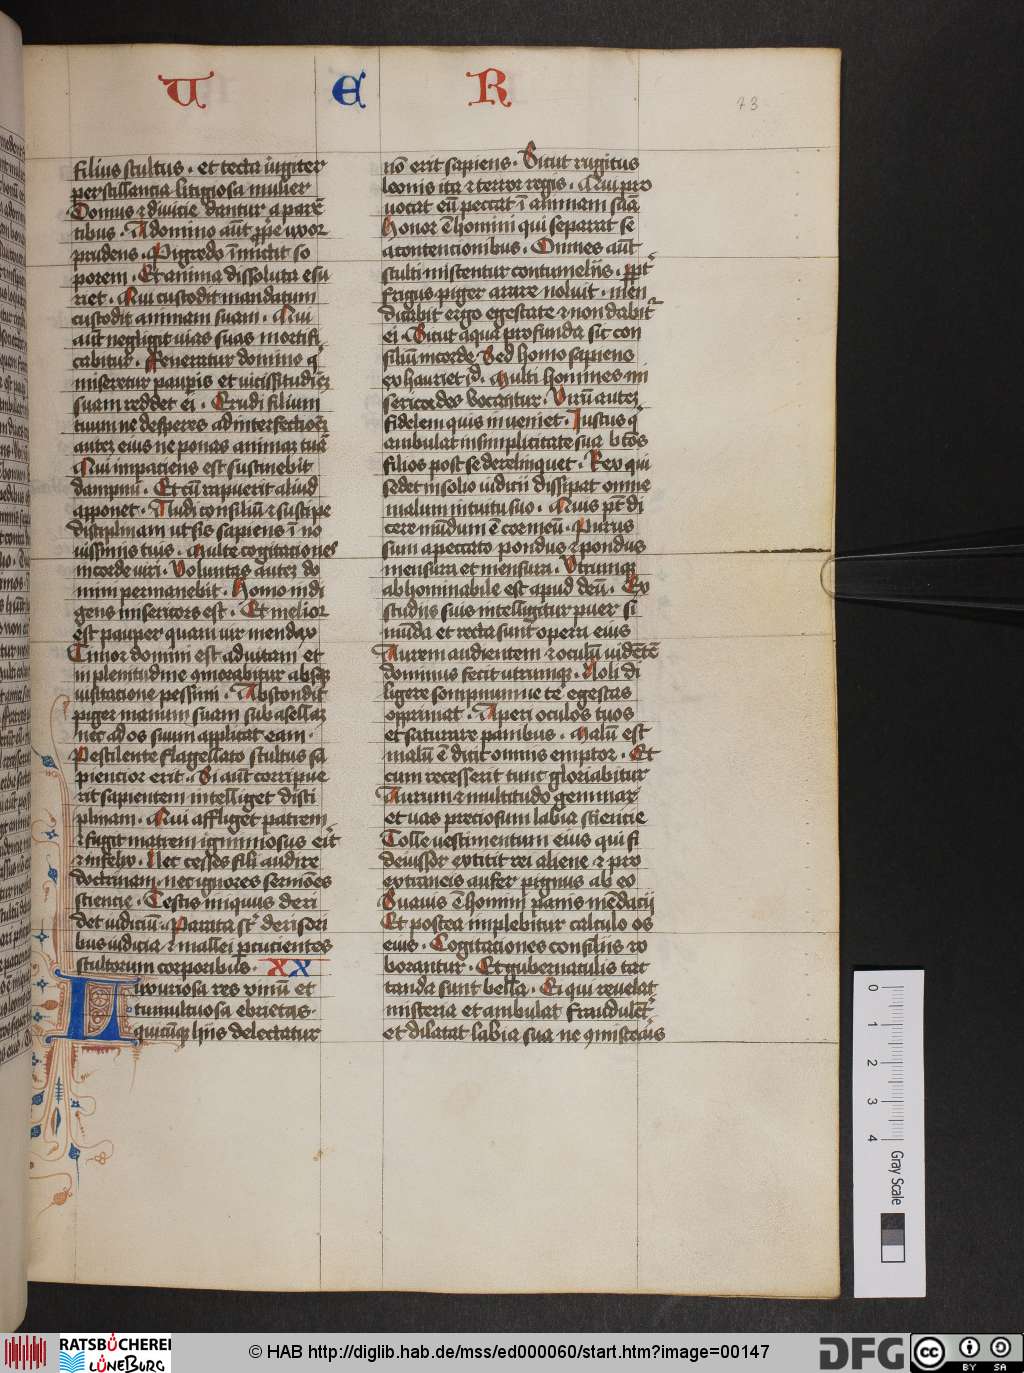 U E R
73
filius stultus . et tecta iugiter
perstillancia litigiosa mulier
Domus ⁊ diuicie dantur a parē
tibus . A domino aūt ꝓpͥe uxor
prudens . Pigredo īmictit so
porem . Et anima dissoluta esu
riet . Qui custodit mandatum
custodit animam suam . Qui
aūt negligit uias suas mortifi
cabitur . Feneratur domino qͥ
miseretur paupis et uicissitudinē
suam reddet ei . Erudi filium
tuum ne desperes ad interfectionē
autem eius ne ponas animam tuā
Qui impaciens est sustinebit
dampnū . Et cū rapuerit aliud
apponet . Audi consiliū ⁊ suscipe
disciplinam ut sis sapiens ī no
uissimis tuis . Multe cogitationes
in corde uiri . Voluntas autem do
mini permanebit . Homo indi
gens misericors est . Et melior
est pauper quam uir mendax
Timor domini est ad uitam et
in plenitudine ꝯmorabitur absqꝫ
uisitacione pessimi . Abscondit
piger manum suam sub asellaꝫ
nec ad os suum applicat eam .
Pestilente flagellato stultus sa
piencior erit . Si aūt corripue
rit sapientem intelliget disci
plinam . Qui affliget patrem
⁊ fugit matrem ignominiosus erit
⁊ infelix . Nec cesses fili audire
doctrinam . nec ignores sermōes
sciencie . Testis iniquus deri
det iudiciū . Parata sͭ derisori
bus iudicia ⁊ mallei ꝑcutientes
stultorum corporibus . XX
Luxuriosa res vinū et
tumultuosa ebrietas .
quicūqꝫ hijs delectatur
nō erit sapiens . Sicut rugitus
leonis ita ⁊ terror regis . Qui pro
uocat eū peccat ī animam suā
Honor ē homini qui separat se
a contencionibus . Omnes aūt
stulti miscentur contumeliis . ꝓpt̓
frigus piger arare noluit . men
dicabit ergo egestate ⁊ non dabitᷣ
ei . Sicut aqua profunda sic con
siliū in corde Sed homo sapiens
exhauriet id . Multi homines mi
sericordes vocantur . Virū autem
fidelem quis inueniet . Justus qͥ
ambulat in simplicitate sua btōs
filios post se derelinquet . Rex qui
sedet in solio iudicii dissipat omne
malum intuitu suo . Quis pt̄ di
cere mūdum ē cor meū . Purus
sum a peccato pondus ⁊ pondus
mensura et mensura . Vtrumqꝫ
abhominabile est apud deū . Ex
studiis suis intelligitur puer si
mūda et recta sunt opera eius
Aurem audientem ⁊ oculū uidētē
dominus fecit utrumqꝫ . Noli di
ligere sompnum ne te egestas
opprimat . Aperi oculos tuos
et saturare panibus . Malū est
malū ē dicit omnis emptor . Et
cum recesserit tunc gloriabitur
Aurum ⁊ multitudo gemmaꝝ
et uas preciosum labia sciencie
Tolle uestimentum eius qui fi
deiussor extitit rei aliene ⁊ pro
extraneis aufer pignus ab eo
Suauis ē homini panis mēdacij
Et postea implebitur calculo os
eius . Cogitaciones consiliis ro
borantur . Et gubernaculis trac
tanda sunt bella . Ei qui reuelat
misteria et ambulat fraudulent̓
et dilatat labia sua ne ꝯmiscearis
0 1 2 3 4 Gray Scale
RATSBÜCHEREI
LÜNEBURG
© HAB http://diglib.hab.de/mss/ed000060/start.htm?image=00147
DFG
cc BY SA